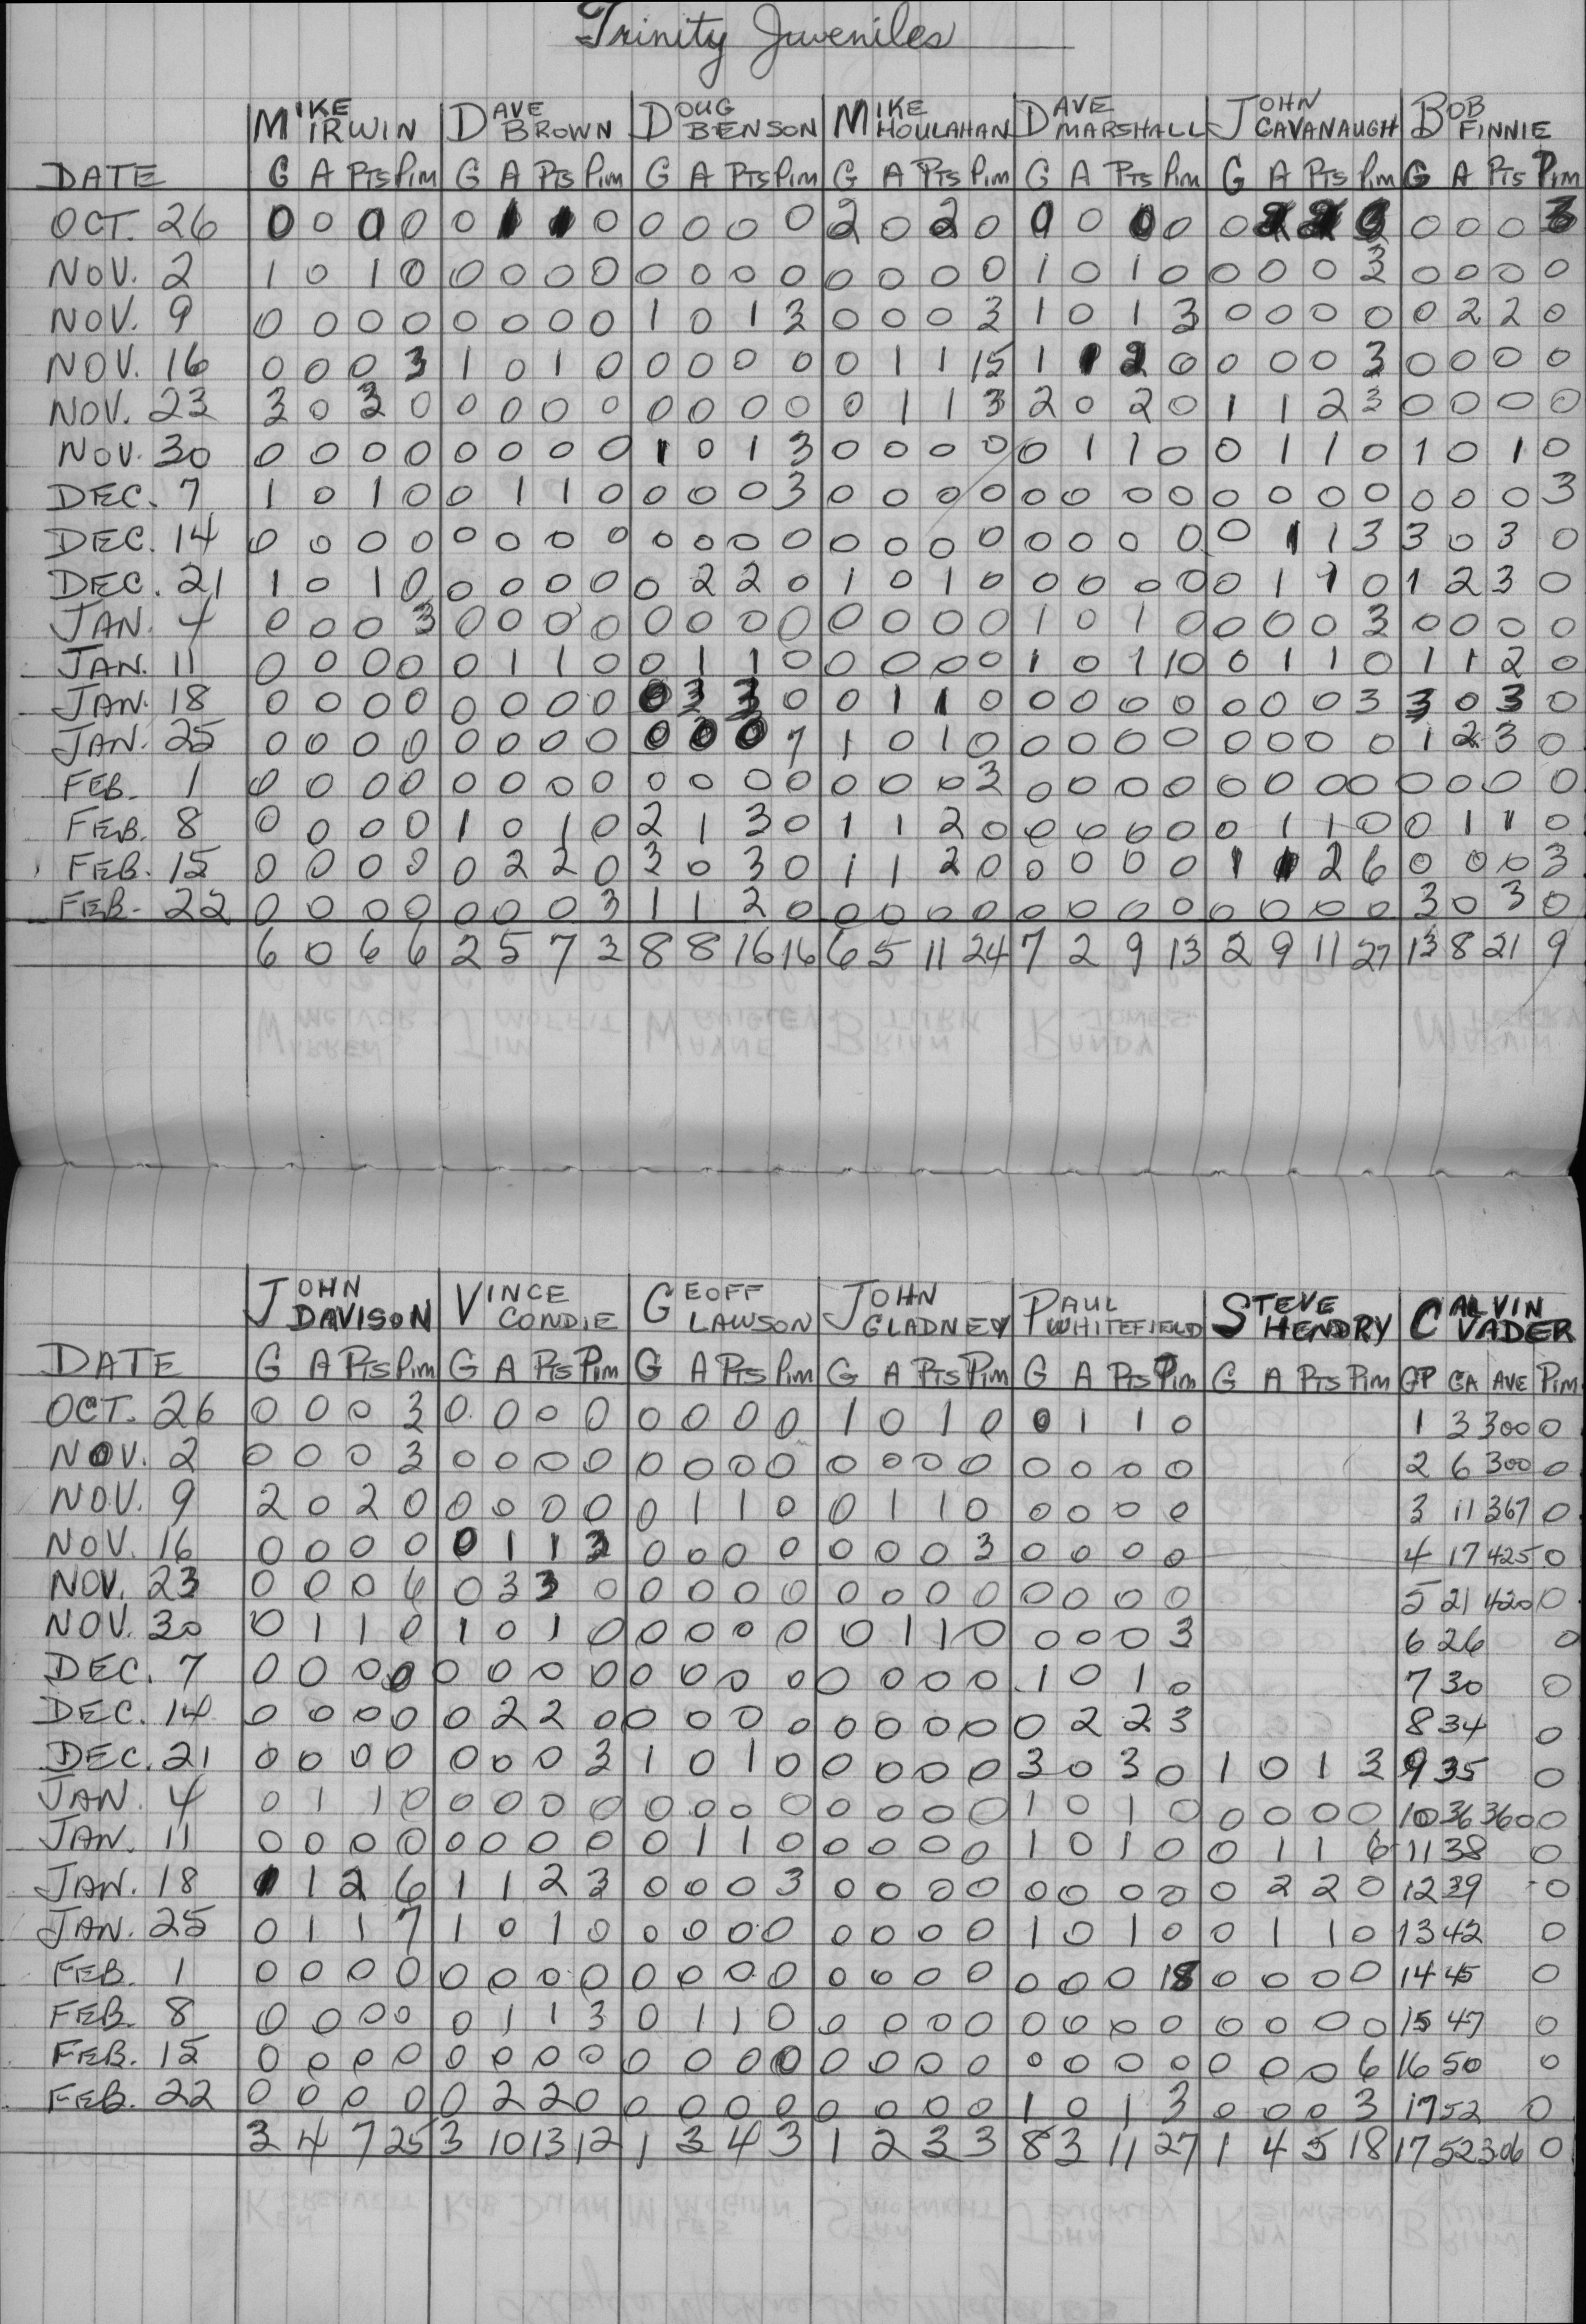 Trinity Juveniles
MIKE IRWIN DAVE BROWN DOUG BENSON MIKE HOULAHAN DAVE MARSHALL JOHN CAVANAUGH BOB FINNIE
DATE G A PTS Pim G A PTS Pim G A PTS Pim G A PTS Pim G A PTS Pim G A PTS Pim G A PTS Pim
OCT. 26 0 0 0 0 0 1 1 0 0 0 0 0 2 0 2 0 0 0 0 0 0 0 0 0 3
NOV. 2 1 0 1 0 0 0 0 0 0 0 0 0 0 0 0 0 1 0 1 0 0 0 0 3 0 0 0 0
NOV. 9 0 0 0 0 0 0 0 0 1 0 1 3 0 0 0 3 1 0 1 3 0 0 0 0 0 2 2 0
NOV. 16 0 0 0 3 1 0 1 0 0 0 0 0 0 1 1 15 1 1 2 0 0 0 0 3 0 0 0 0
NOV. 23 3 0 3 0 0 0 0 0 0 0 0 0 0 1 1 3 2 0 2 0 1 1 2 3 0 0 0 0
NOV. 30 0 0 0 0 0 0 0 0 1 0 1 3 0 0 0 0 0 1 1 0 0 1 1 0 1 0 1 0
DEC. 7 1 0 1 0 0 1 1 0 0 0 0 3 0 0 0 0 0 0 0 0 0 0 0 0 0 0 0 3
DEC. 14 0 0 0 0 0 0 0 0 0 0 0 0 0 0 0 0 0 0 0 0 0 1 1 3 3 0 3 0
DEC. 21 1 0 1 0 0 0 0 0 0 2 2 0 1 0 1 0 0 0 0 0 0 1 1 0 1 2 3 0
JAN. 4 0 0 0 3 0 0 0 0 0 0 0 0 0 0 0 0 1 0 1 0 0 0 0 3 0 0 0 0
JAN. 11 0 0 0 0 0 1 1 0 0 1 1 0 0 0 0 0 1 0 1 10 0 1 1 0 1 1 2 0
JAN. 18 0 0 0 0 0 0 0 0 0 3 3 0 0 1 1 0 0 0 0 0 0 0 0 3 3 0 3 0
JAN. 25 0 0 0 0 0 0 0 0 0 0 0 7 1 0 1 0 0 0 0 0 0 0 0 0 1 2 3 0
FEB. 1 0 0 0 0 0 0 0 0 0 0 0 0 0 0 0 3 0 0 0 0 0 0 0 0 0 0 0 0
FEB. 8 0 0 0 0 1 0 1 0 2 1 3 0 1 1 2 0 0 0 0 0 0 1 1 0 0 1 1 0
FEB. 15 0 0 0 0 0 2 2 0 3 0 3 0 1 1 2 0 0 0 0 0 1 1 2 6 0 0 0 3
FEB. 22 0 0 0 0 0 0 0 3 1 1 2 0 0 0 0 0 0 0 0 0 0 0 0 0 3 0 3 0
6 0 6 6 2 5 7 3 8 8 16 16 6 5 11 24 7 2 9 13 2 9 11 27 13 8 21 9
JOHN DAVISON VINCE CONDIE GEOFF LAWSON JOHN GLADNEY PAUL WHITEFIELD STEVE HENDRY CALVIN VADER
DATE G A PTS Pim G A PTS Pim G A PTS Pim G A PTS Pim G A PTS Pim G A PTS Pim GP GA AVE Pim
OCT. 26 0 0 0 3 0 0 0 0 0 0 0 0 1 0 1 0 0 1 1 0 1 3 300 0
NOV. 2 0 0 0 3 0 0 0 0 0 0 0 0 0 0 0 0 0 0 0 0 2 6 300 0
NOV. 9 2 0 2 0 0 0 0 0 0 1 1 0 0 1 1 0 0 0 0 0 3 11 367 0
NOV. 16 0 0 0 0 0 1 1 3 0 0 0 0 0 0 0 3 0 0 0 0 4 17 425 0
NOV. 23 0 0 0 6 0 3 3 0 0 0 0 0 0 0 0 0 0 0 0 0 5 21 420 0
NOV. 30 0 1 1 0 1 0 1 0 0 0 0 0 0 1 1 0 0 0 0 3 6 26 0
DEC. 7 0 0 0 0 0 0 0 0 0 0 0 0 0 0 0 0 1 0 1 0 7 30 0
DEC. 14 0 0 0 0 0 2 2 0 0 0 0 0 0 0 0 0 0 2 2 3 8 34 0
DEC. 21 0 0 0 0 0 0 0 3 1 0 1 0 0 0 0 0 3 0 3 0 1 0 1 3 9 35 0
JAN. 4 0 1 1 0 0 0 0 0 0 0 0 0 0 0 0 0 1 0 1 0 0 0 0 0 10 36 360 0
JAN. 11 0 0 0 0 0 0 0 0 0 1 1 0 0 0 0 0 1 0 1 0 0 1 1 6 11 38 0
JAN. 18 1 1 2 6 1 1 2 3 0 0 0 3 0 0 0 0 0 0 0 0 0 2 2 0 12 39 0
JAN. 25 0 1 1 7 1 0 1 0 0 0 0 0 0 0 0 0 1 0 1 0 0 1 1 0 13 42 0
FEB. 1 0 0 0 0 0 0 0 0 0 0 0 0 0 0 0 0 0 0 0 18 0 0 0 0 14 45 0
FEB. 8 0 0 0 0 0 1 1 3 0 1 1 0 0 0 0 0 0 0 0 0 0 0 0 0 15 47 0
FEB. 15 0 0 0 0 0 0 0 0 0 0 0 0 0 0 0 0 0 0 0 0 0 0 0 6 16 50 0
FEB. 22 0 0 0 0 0 2 2 0 0 0 0 0 0 0 0 0 1 0 1 3 0 0 0 3 17 52 0
3 4 7 25 3 10 13 12 1 3 4 3 1 2 3 3 8 3 11 27 1 4 5 18 17 52 306 0